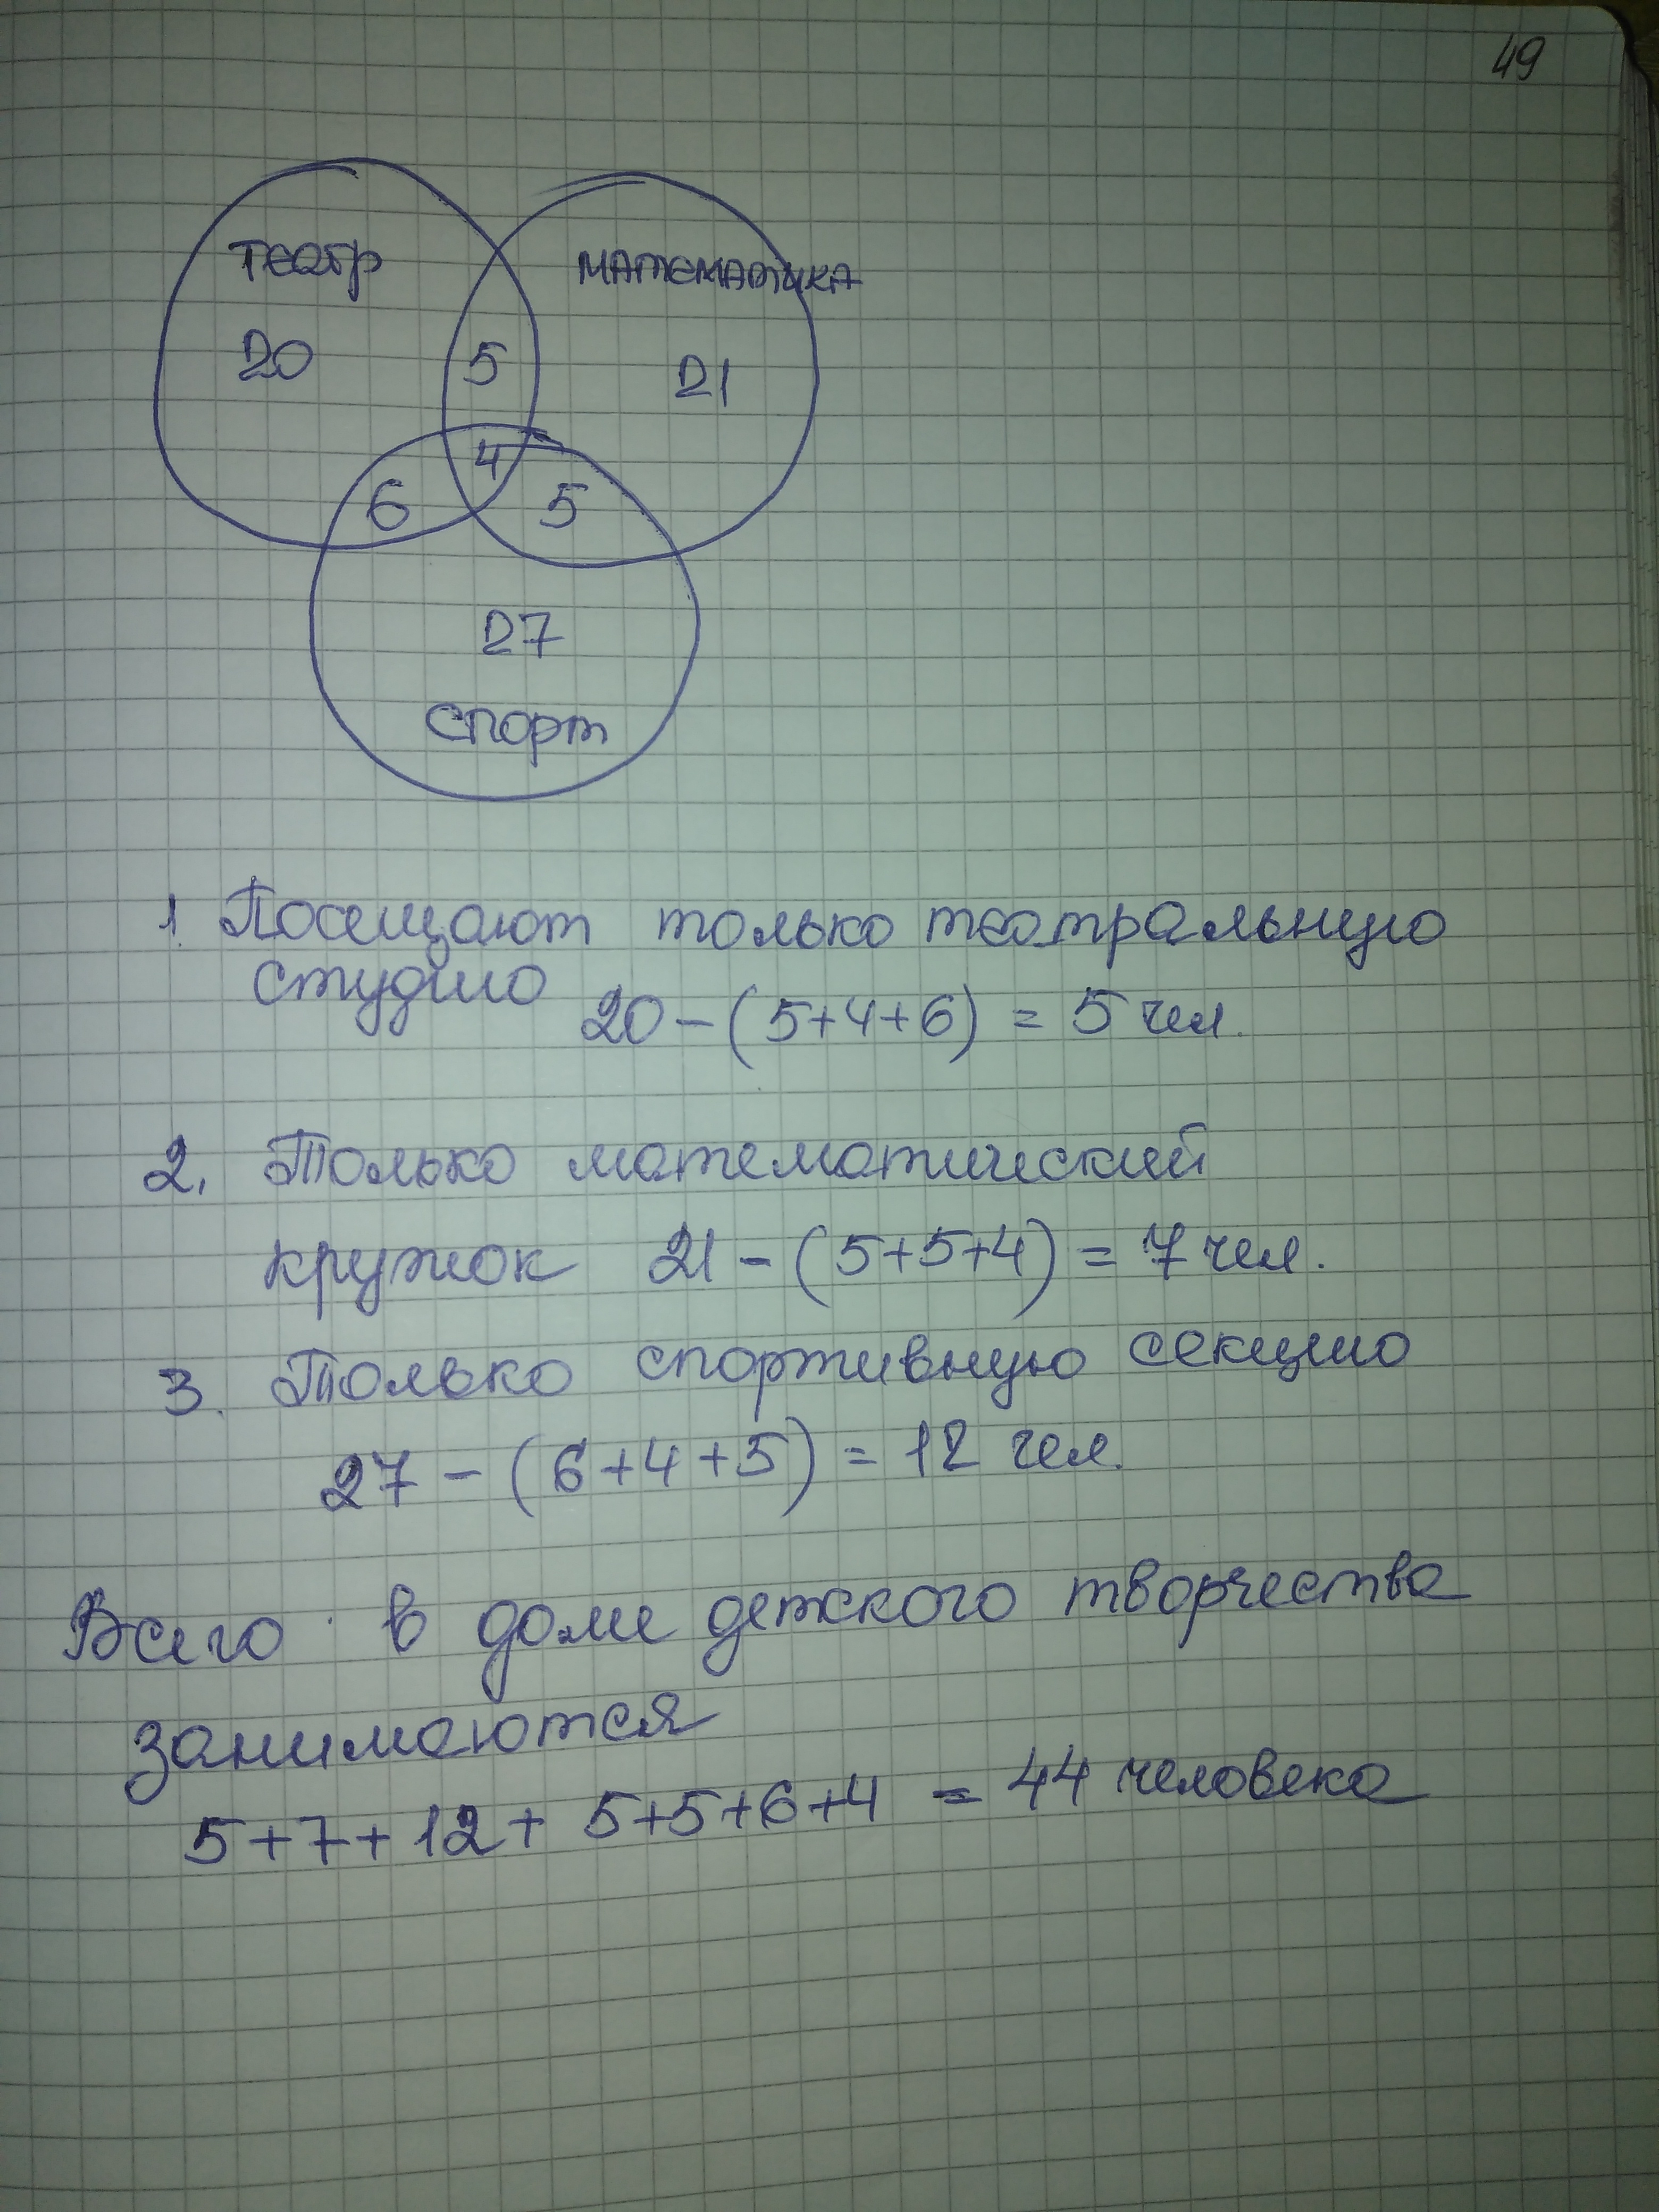 49
ТЕАТР
МАТЕМАТИКА
20
5
21
4
6
5
27
СПОРТ
1. Посещают только театральную
студию 20-(5+4+6) = 5 чел.
2. Только математический
кружок 21-(5+5+4) = 7 чел.
3. Только спортивную секцию
27-(6+4+5) = 12 чел.
Всего в доме детского творчества
занимаются
5+7+12+5+5+6+4 = 44 человека